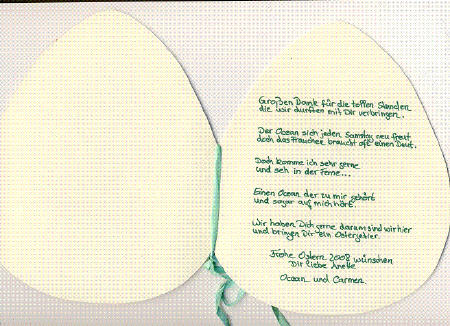 Großen Dank für die tollen Stunden
die wir durften mit Dir verbringen.
Der Ocean sich jeden Samstag neu freut
doch das Frauchen braucht oft einen Deut.
Doch komme ich sehr gerne
und seh in der Ferne...
Einen Ocean der zu mir gehört
und sogar auf mich hört.
Wir haben Dich gerne darum sind wir hier
und bringen Dir ein
Frohe Ostern 2008 wünschen
Dir liebe
Ocean und Carmen.